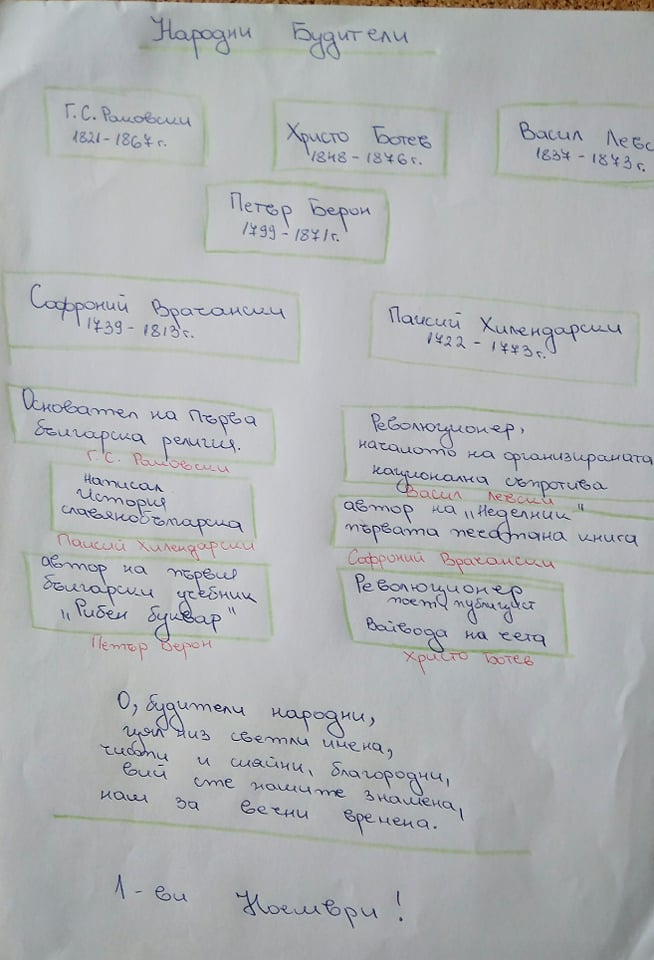 Народни Будители
Г. С. Раковски
1821 - 1867 г.
Христо Ботев
1848 - 1876 г.
Васил Левс
1837 - 1873 г.
Петър Берон
1799 - 1871 г.
Софроний Врачански
1739 - 1813 г.
Паисий Хилендарски
1722 - 1773 г.
Основател на Първа
българска религия.
Г. С. Раковски
Написал
История
славянобългарска
Паисий Хилендарски
автор на първия
български учебник
„Рибен буквар"
Петър Берон
Революционер,
началото на организираната
национална съпротива
Васил Левски
автор на „Неделник"
първата печатана книга
Софроний Врачански
Революционер
поет, публицист
Войвода на чета
Христо Ботев
О, будители народни,
цял низ светли имена,
чисти и сияйни, благородни,
вий сте нашите знамена,
нам за вечни времена.
1 - ви Ноември!